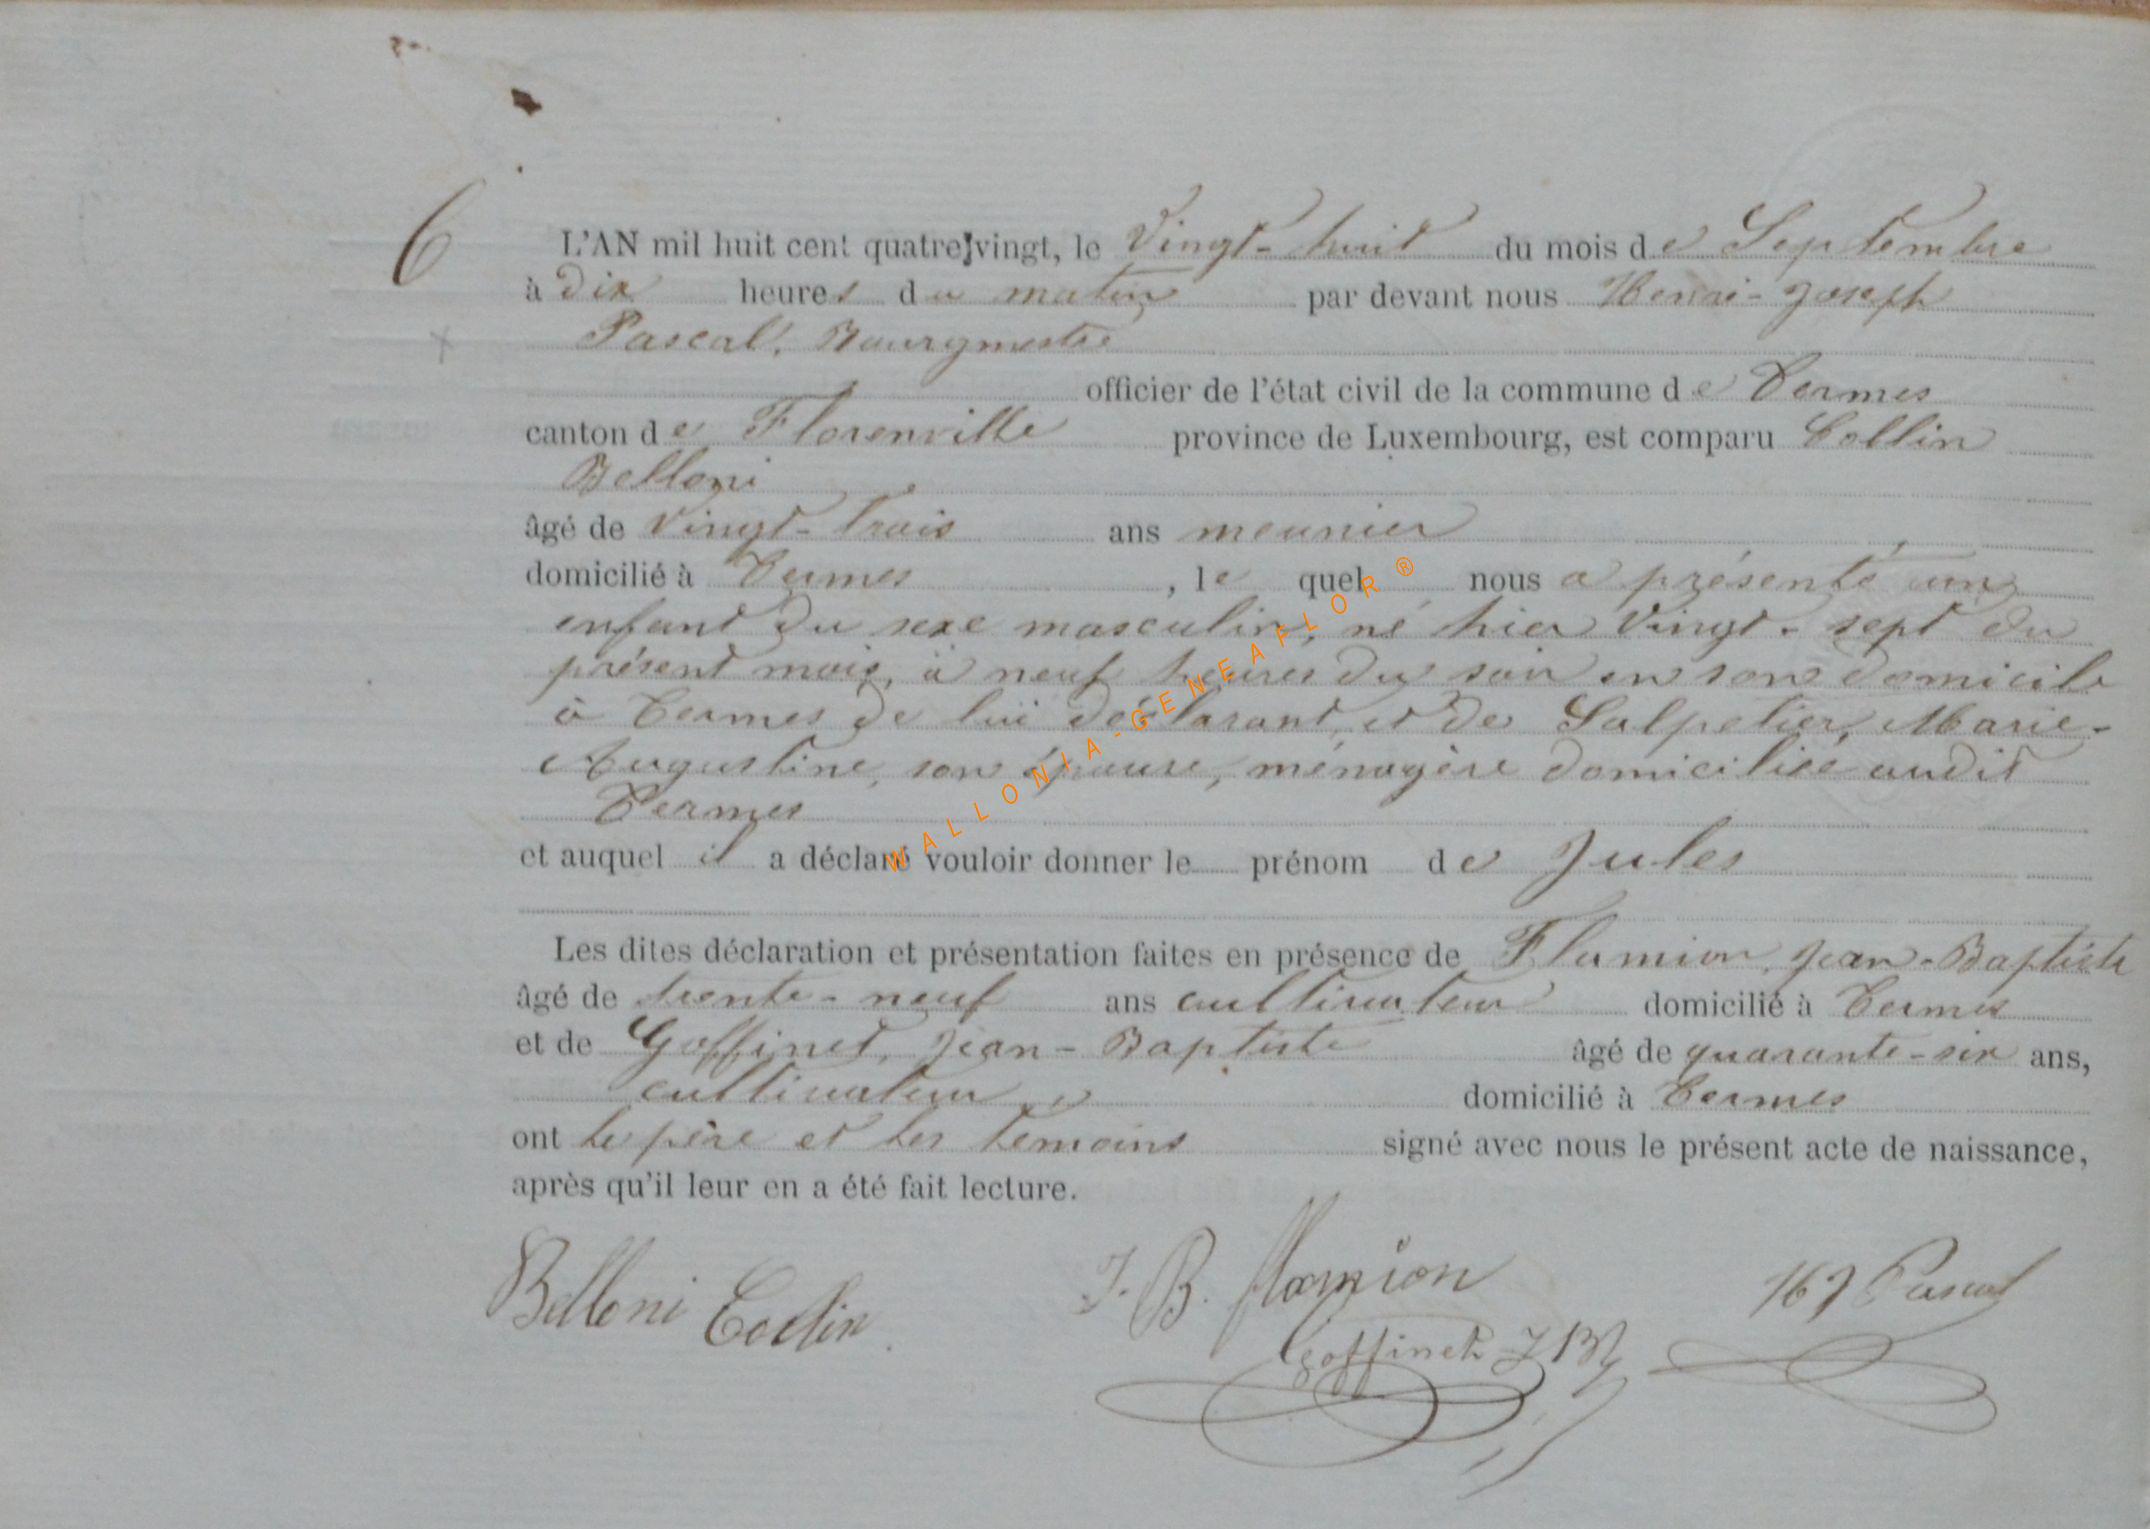 6
L'AN mil huit cent quatre vingt, le Vingt-huit du mois de Septembre
à dix heures du matin par devant nous Henri-Joseph
Pascal, Bourgmestre
officier de l'état civil de la commune de Termes
canton de Florenville province de Luxembourg, est comparu Collin
Belloni
âgé de vingt-trois ans meunier
domicilié à Termes, le quel nous a présenté un
enfant du sexe masculin, né hier vingt-sept du
présent mois, à neuf heures du soir en son domicile
à Termes de lui déclarant, et de Salpetier, Marie-
Augustine, son épouse, ménagère domiciliée audit
Termes
et auquel il a déclaré vouloir donner le prénom de Jules
Les dites déclaration et présentation faites en présence de Flamion, Jean-Baptiste
âgé de trente-neuf ans cultivateur domicilié à Termes
et de Goffinet, Jean-Baptiste âgé de quarante-six ans,
cultivateur domicilié à Termes
ont le père et les témoins signé avec nous le présent acte de naissance,
après qu'il leur en a été fait lecture.
Belloni Collin.
J. B. flamion
Goffinet J B
HJ Pascal
WALLONIA-GENEAFLOR ®